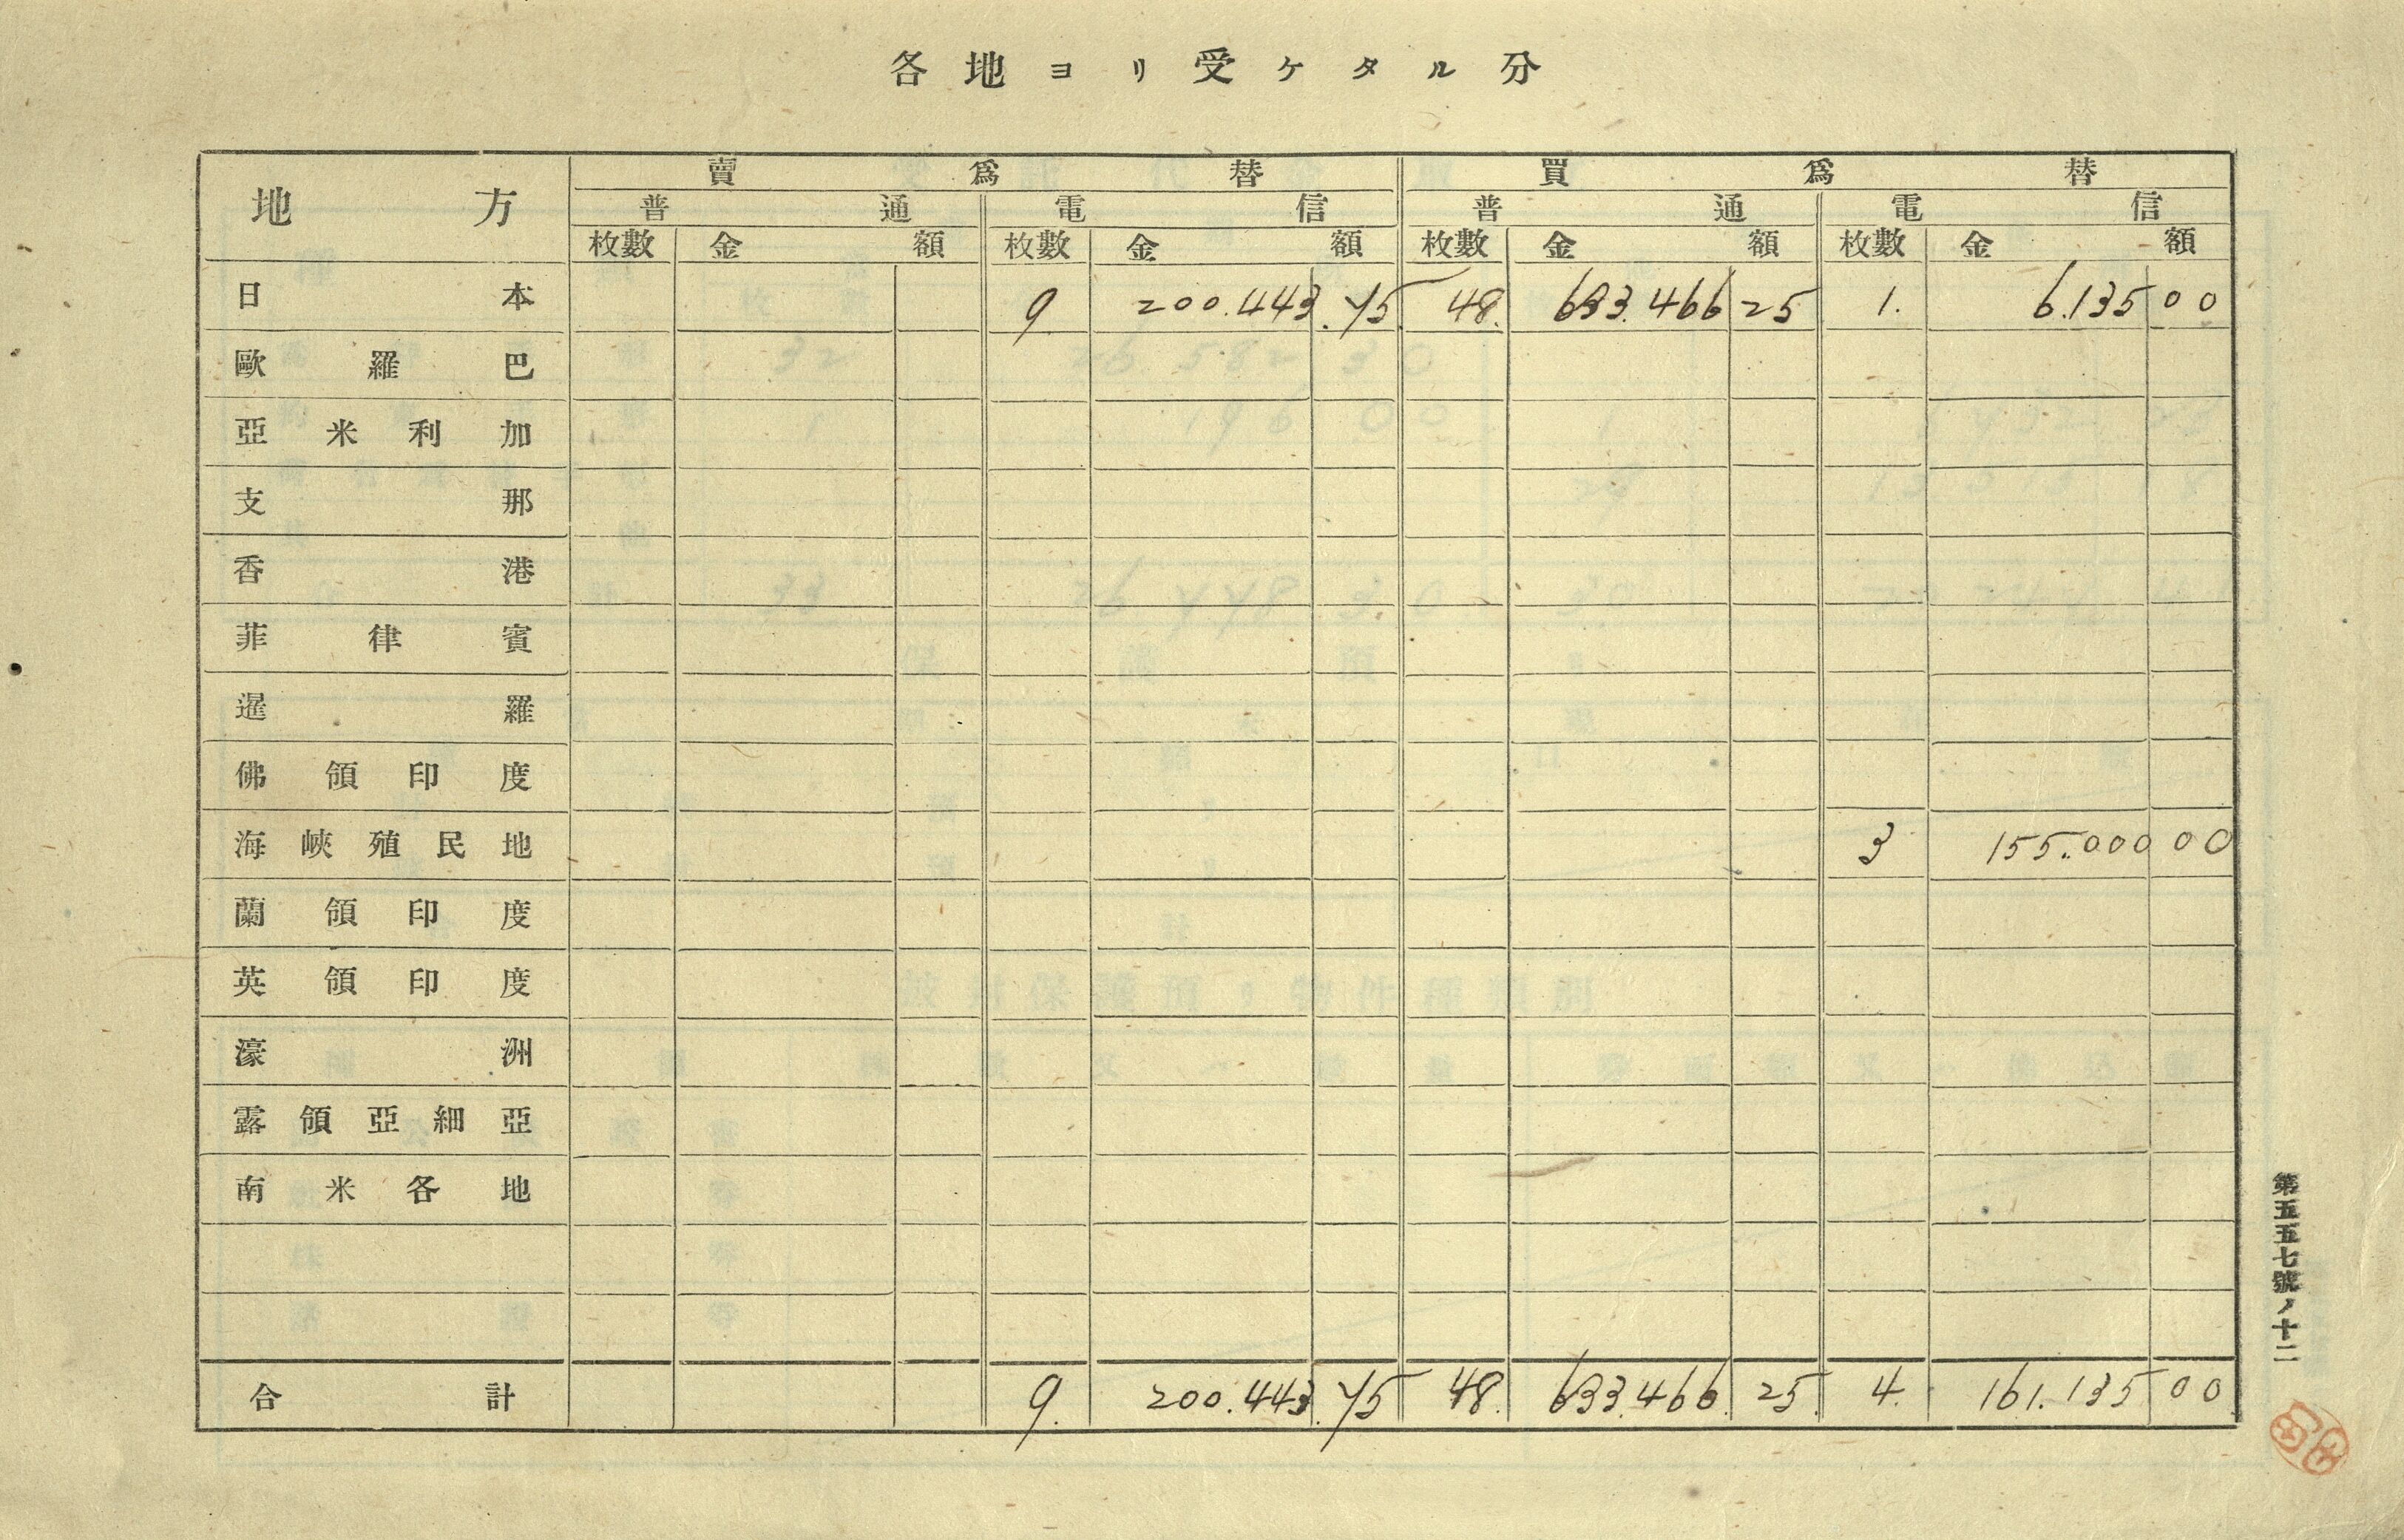 各地ヨリ受ケタル分
地方 賣爲替 買爲替
普通 電信 普通 電信
枚數 金額 枚數 金額 枚數 金額 枚數 金額
日本 9. 200.443.75 48. 633.466 25 1. 6.135 00
歐羅巴
亞米利加
支那
香港
菲律賓
暹羅
佛領印度
海峽殖民地 3 155.000 00
蘭領印度
英領印度
濠洲
露領亞細亞
南米各地
合計 9. 200.443.75 48. 633.466. 25. 4. 161.135 00
第五五七號ノ十二